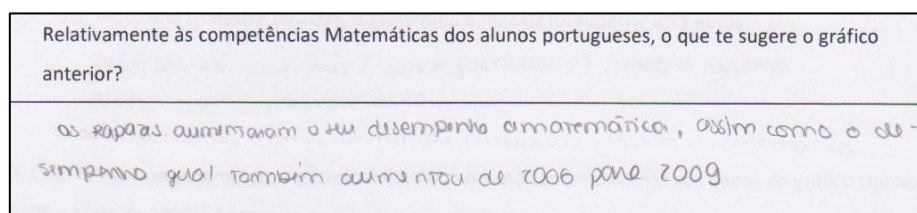 Relativamente às competências Matemáticas dos alunos portugueses, o que te sugere o gráfico
anterior?
os rapazes aumentaram o seu desempenho a matemática, assim como o de-
sempenho que também aumentou de 2006 para 2009